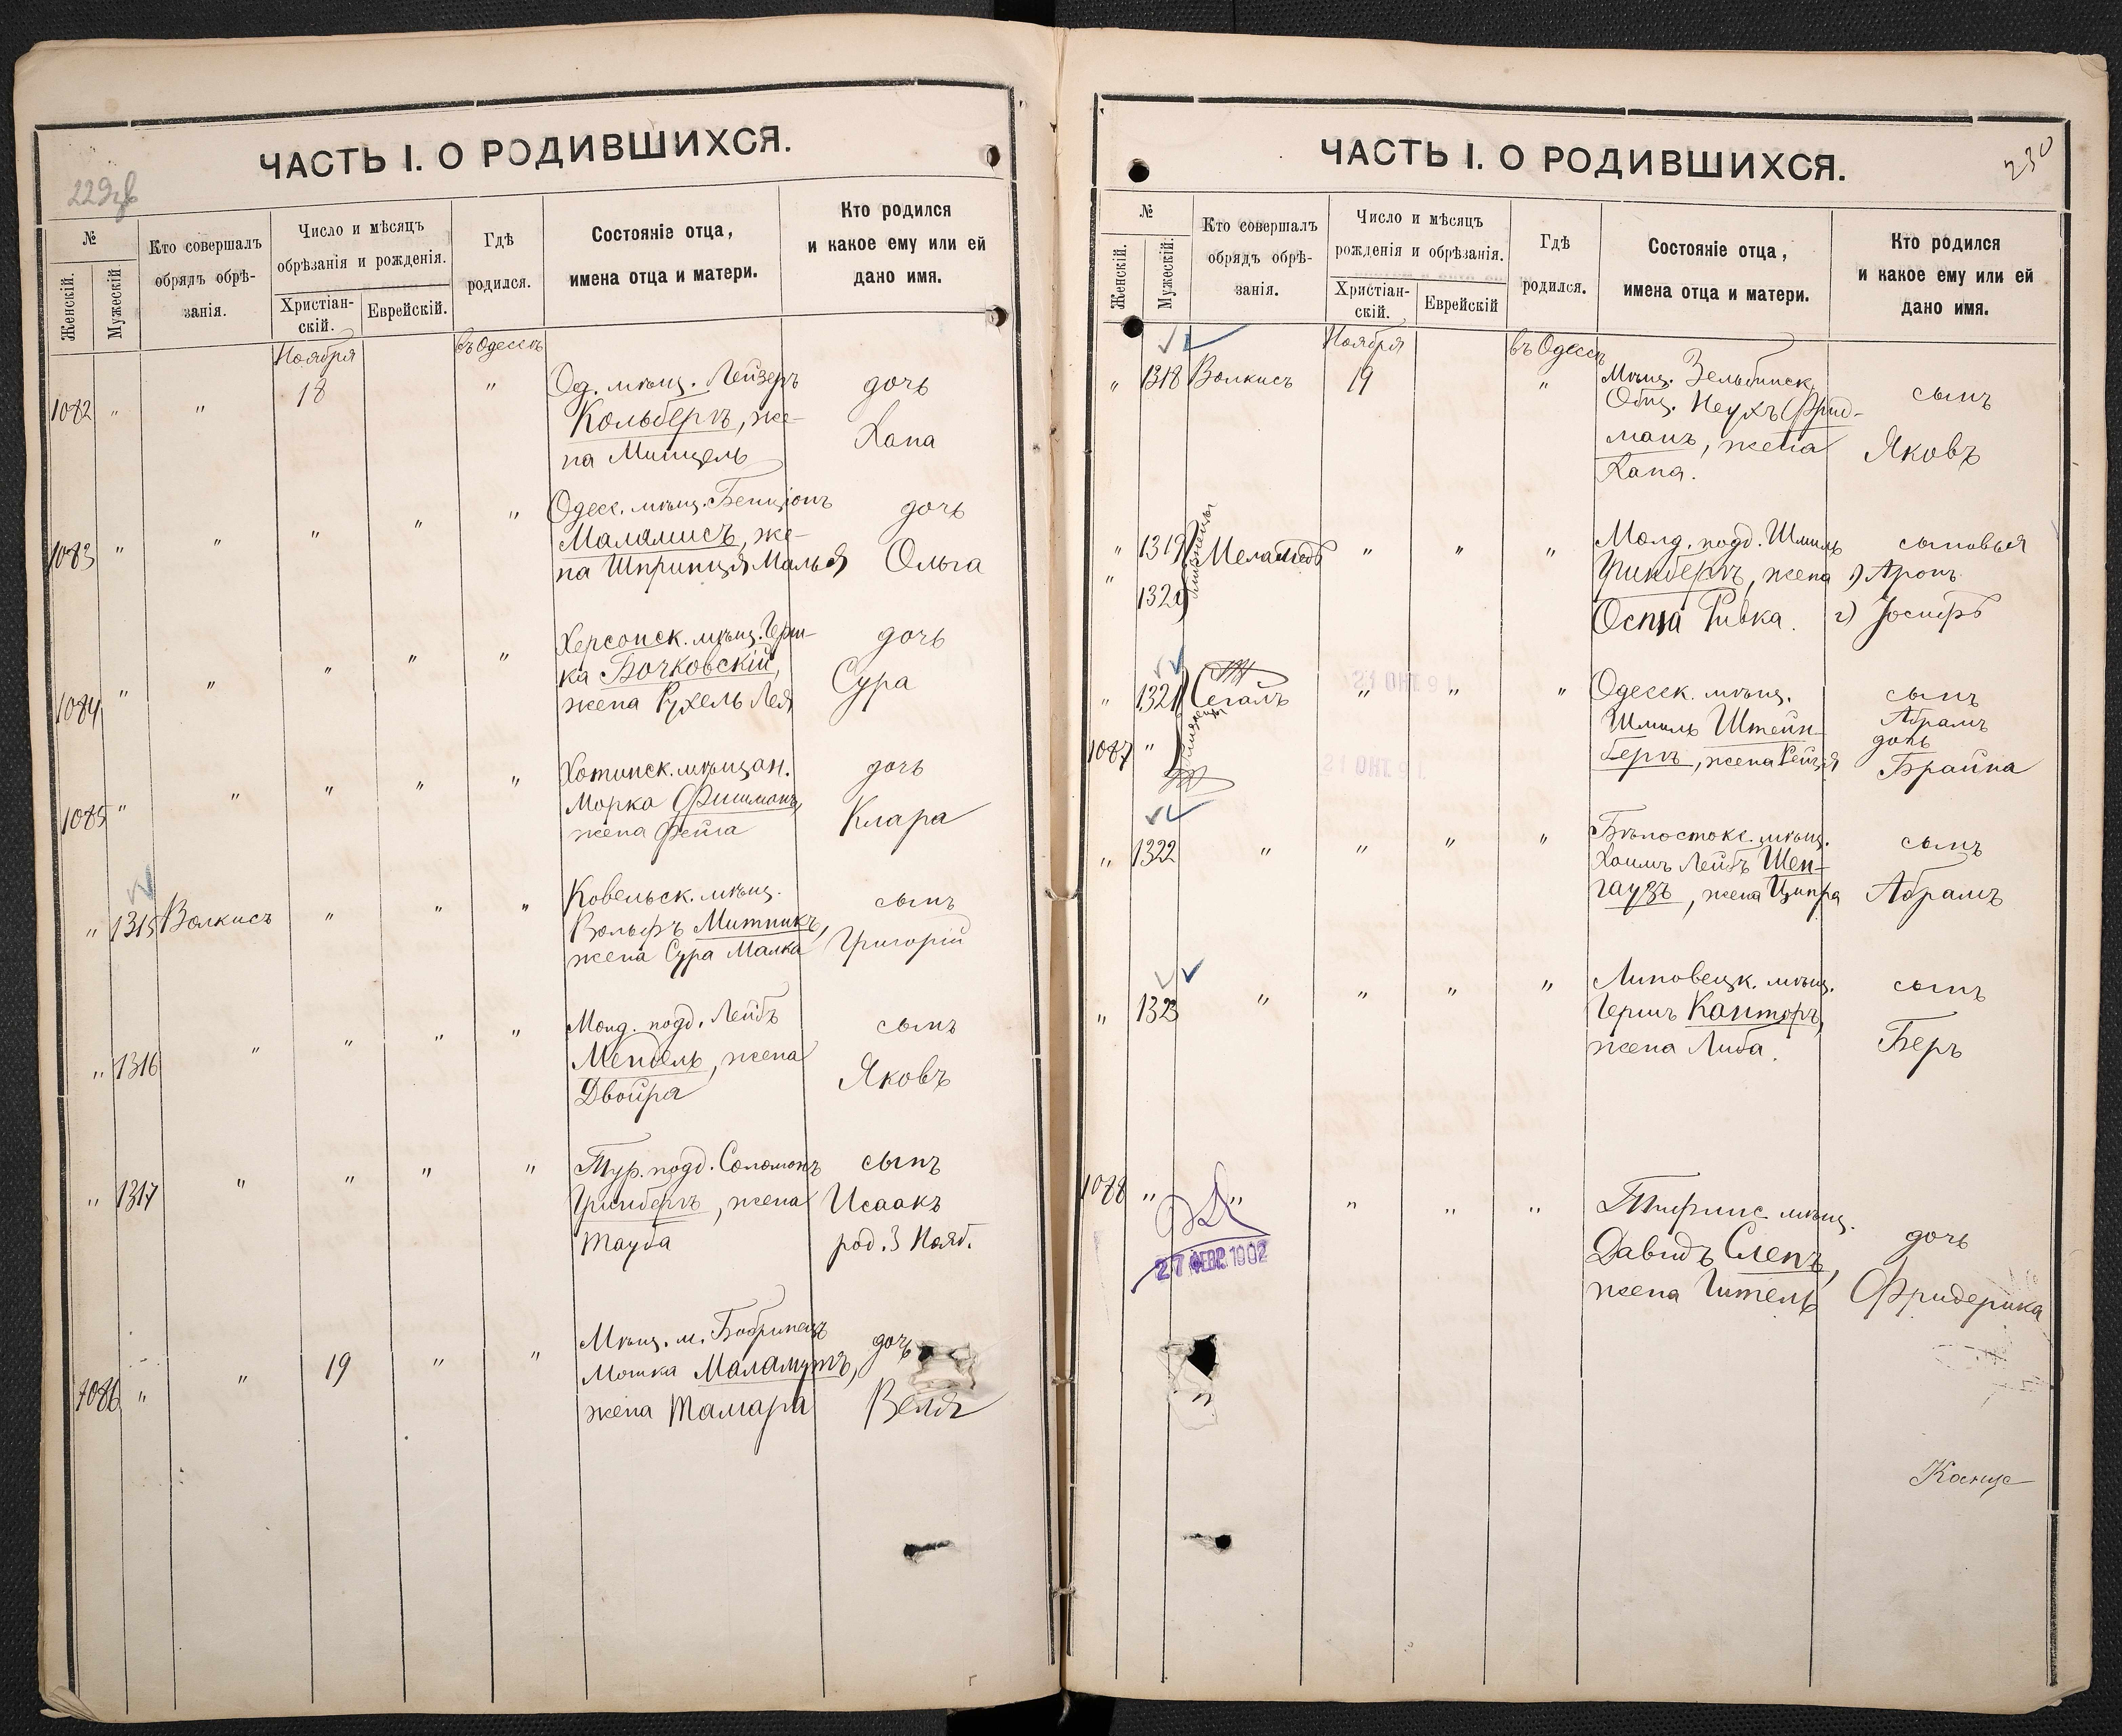 ЧАСТЬ I. О РОДИВШИХСЯ.
№
Женскій.
Мужескій
Кто совершалъ
обрядъ обрѣ-
занія.
Число и мѣсяцъ
обрѣзанія и рожденія.
Христіан-
скій.
Еврейскій.
Гдѣ
родился.
Состояніе отца,
имена отца и матери.
Кто родился
и какое ему или ей
дано имя.
Ноября
въ Одессѣ
1082 " " 18 "
Од. мѣщ. Лейзеръ
Кольбергъ, же-
на Минцель
дочь
Хана
1083 " " " " "
Одесс. мѣщ. Бенціонъ
Маламисъ, же-
на Шпринця Малья
дочь
Ольга
1084 " " " " "
Херсонск. мѣщ. Герш-
ка Бочковскій,
жена Рухель Лея
дочь
Сура
1085 " " " " "
Хотинск. мѣщан.
Морко Фишманъ,
жена Фейга
дочь
Клара
" 1315 Волкисъ " " "
Ковельск. мѣщ.
Вольфъ Митникъ,
жена Сура Малка
сынъ
Григорій
" 1316 " " " "
Молд. подд. Лейбъ
Мендель, жена
Двойра
сынъ
Яковъ
" 1317 " " " "
Тур. подд. Соломонъ
Гринбергъ, жена
Тауба
сынъ
Исаакъ
род. 3 Нояб.
1086 " " 19 " "
Мѣщ. м. Бобринецъ
Мошка Маламутъ,
жена Тамара
дочь
Веля
ЧАСТЬ I. О РОДИВШИХСЯ.
230
№
Женскій.
Мужескій.
Кто совершалъ
обрядъ обрѣ-
занія.
Число и мѣсяцъ
рожденія и обрѣзанія.
Христіан-
скій.
Еврейскій
Гдѣ
родился.
Состояніе отца,
имена отца и матери.
Кто родился
и какое ему или ей
дано имя.
Ноября
въ Одессѣ
" 1318 Волкисъ 19 "
Мѣщ.
Общ. Неухъ Фрид-
манъ, жена
Хана.
сынъ
Яковъ
" 1319 Меламедъ " " "
" 1320
близнецы
Молд. подд. Шмиль
Гринбергъ, жена
Осна Ривка.
сыновья
1) Аронъ
2) Іосифъ
" 1321 Сегалъ " " "
1087 "
близнецы
Одесск. мѣщ.
Шмиль Штейн-
бергъ, жена Рейзя
сынъ
Абрамъ
дочь
Брайна
" 1322 " " " "
Бѣлостокс. мѣщ.
Хаимъ Лейбъ Шен-
гаузъ, жена Ципра
сынъ
Абрамъ
" 1323 " " " "
Липовецк. мѣщ.
Гершъ Канторъ,
жена Либа.
сынъ
Беръ
1088 " " " " "
27 ФЕВР. 1902
Тифлис мѣщ.
Давидъ Слепъ,
жена Гитель
дочь
Фридерика